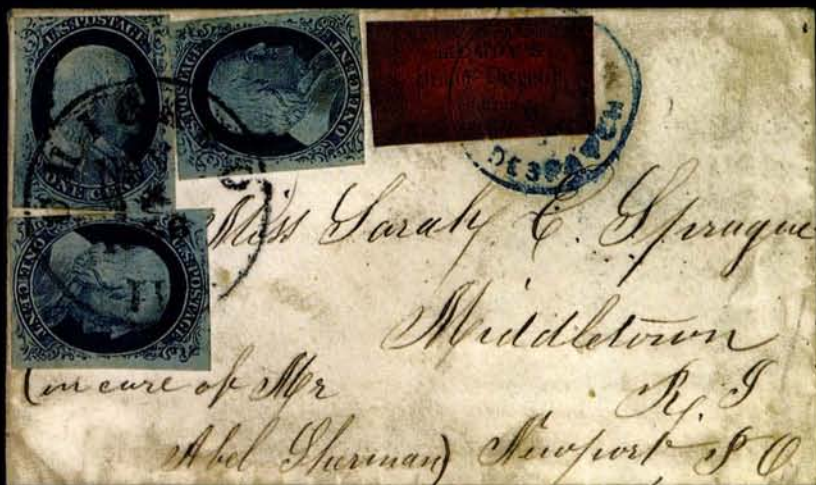 U.S. POSTAGE
ONE CENT
U.S. POSTAGE
ONE CENT
U.S. POSTAGE
ONE CENT
DESPATCH
Miss Sarah C. Sprague
Middletown
R. I
(in care of Mr
Abel Sherman) Newport P O